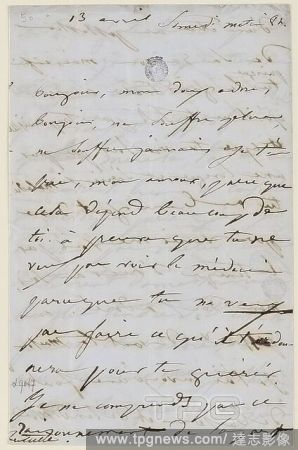 50
13 avril Samedi matin 8h.
bonjour, mon doux adoré,
bonjour, ne souffre plus
ne souffre jamais, je t'en
prie, mon amour, parce que
cela dépend beaucoup de
toi. à preuve que tu ne
veux pas voir le médecin
parce que tu ne veux
pas faire ce qu'il
pour te guérir.
Je ne comprends pas ce
raisonnement de la part
TPG
www.tpgnews.com / 達志影像